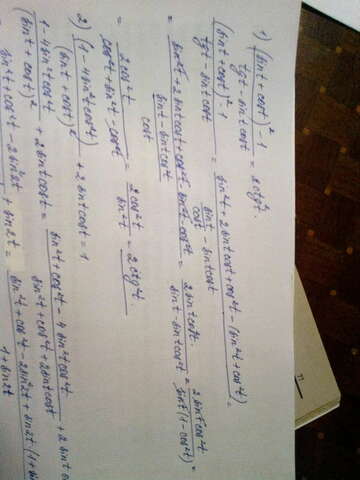 1) ((sin t + cos t)² - 1) / (tg t - sin t cos t) = 2ctg²t.
((sin t + cos t)² - 1) / (tg t - sin t cos t) = (sin²t + 2 sin t cos t + cos²t - (sin²t + cos²t)) / (sin t / cos t - sin t cos t) =
= (sin²t + 2 sin t cos t + cos²t - sin²t - cos²t) / ((sin t - sin t cos²t) / cos t) = 2 sin t cos²t / (sin t - sin t cos²t) = 2 sin t cos²t / (sin t (1 - cos²t)) =
= 2cos²t / (cos²t + sin²t - cos²t) = 2cos²t / sin²t = 2ctg²t.
2) (1 - 4 sin²t cos²t) / (sin t + cos t)² + 2 sin t cos t = 1
(1 - 4 sin²t cos²t) / (sin t + cos t)² + 2 sin t cos t = (sin²t + cos²t - 4 sin²t cos²t) / (sin²t + cos²t + 2 sin t cos t) + 2 sin t
sin²t + cos²t - 2 sin²2t + sin 2t = (sin²t + cos²t - 2 sin²2t + sin 2t (1 + / 1 + sin 2t